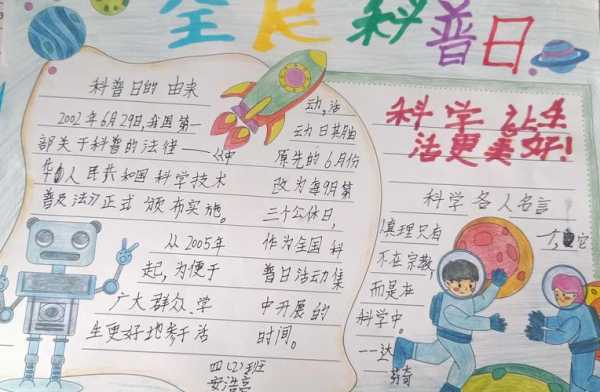 全民科普日
科普日的由来
2002年6月29日,我国第一
部关于科普的法律——《中
华人民共和国科学技术
普及法》正式颁布实施。
从2005年
起,为便于
广大群众、学
生更好地参于活
动,活
动日其由
原先的6月份
改为每9月第
三个公休日,
作为全国科
普日活动集
中开展的
时间。
四(2)班
安浩亮
科学让生
活更美好!
科学名人名言
真理只有
一个,它
不在宗教,
而是在
科学中。
——达
芬奇